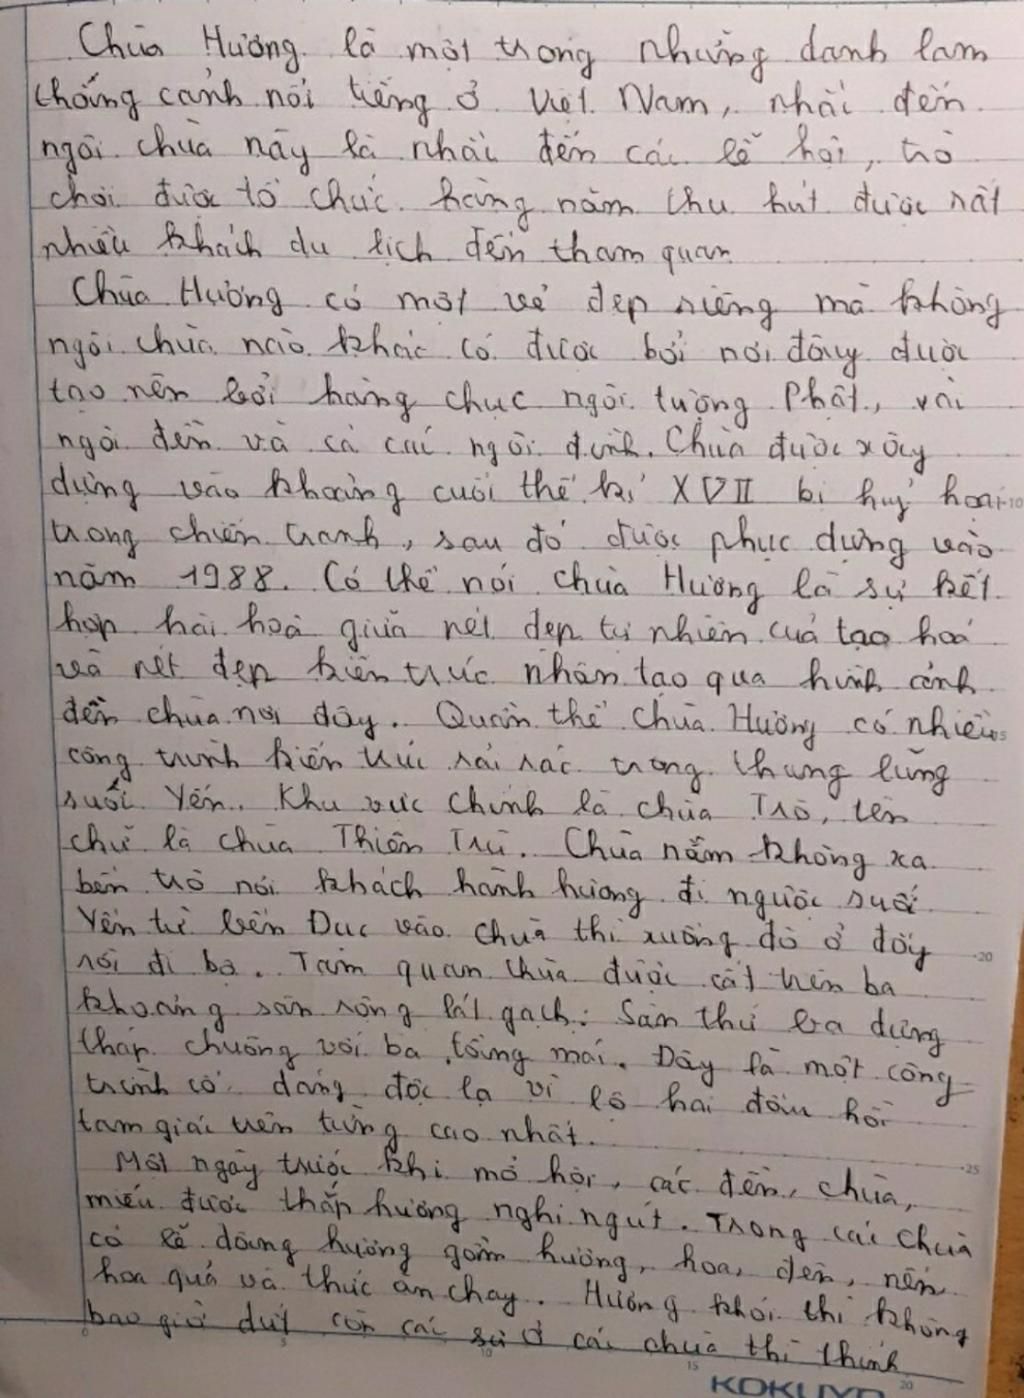 Chùa Hương là một trong những danh lam
thắng cảnh nổi tiếng ở Việt Nam, nhắc đến
ngôi chùa này là nhắc đến các lễ hội, trò
chơi được tổ chức hằng năm thu hút được rất
nhiều khách du lịch đến tham quan
Chùa Hương có một vẻ đẹp riêng mà không
ngôi chùa nào khác có được bởi nơi đây được
tạo nên bởi hàng chục ngôi tượng Phật, vài
ngôi đền và cả các ngôi đình. Chùa được xây
dựng vào khoảng cuối thế kỉ XVII bị huỷ hoại
trong chiến tranh, sau đó được phục dựng vào
năm 1988. Có thể nói chùa Hương là sự kết
hợp hài hoà giữa nét đẹp tự nhiên của tạo hoá
và nét đẹp kiến trúc nhân tạo qua hình ảnh
đền chùa nơi đây. Quần thể chùa Hương có nhiều
công trình kiến trúc rải rác trong thung lũng
suối Yến. Khu vực chính là chùa Trò, tên
chữ là chùa Thiên Trù. Chùa nằm không xa
bến trò nơi khách hành hương đi ngược suối
Yến từ bến Đục vào chùa thì xuống đò ở đấy
rồi đi bộ. Tam quan chùa được cất trên ba
khoảng sân rộng lát gạch. Sân thứ ba dựng
tháp chuông với ba tầng mái. Đây là một công
trình cổ dáng độc lạ vì lộ hai đầu hồi
tam giác trên tầng cao nhất.
Một ngày trước khi mở hội, các đền, chùa,
miếu được thắp hương nghi ngút. Trong các chùa
có lễ dâng hương gồm hương, hoa, đèn, nến
hoa quả và thức ăn chay. Hương khói thì không
bao giờ dứt còn các sư ở các chùa thì thỉnh
KOKUYO